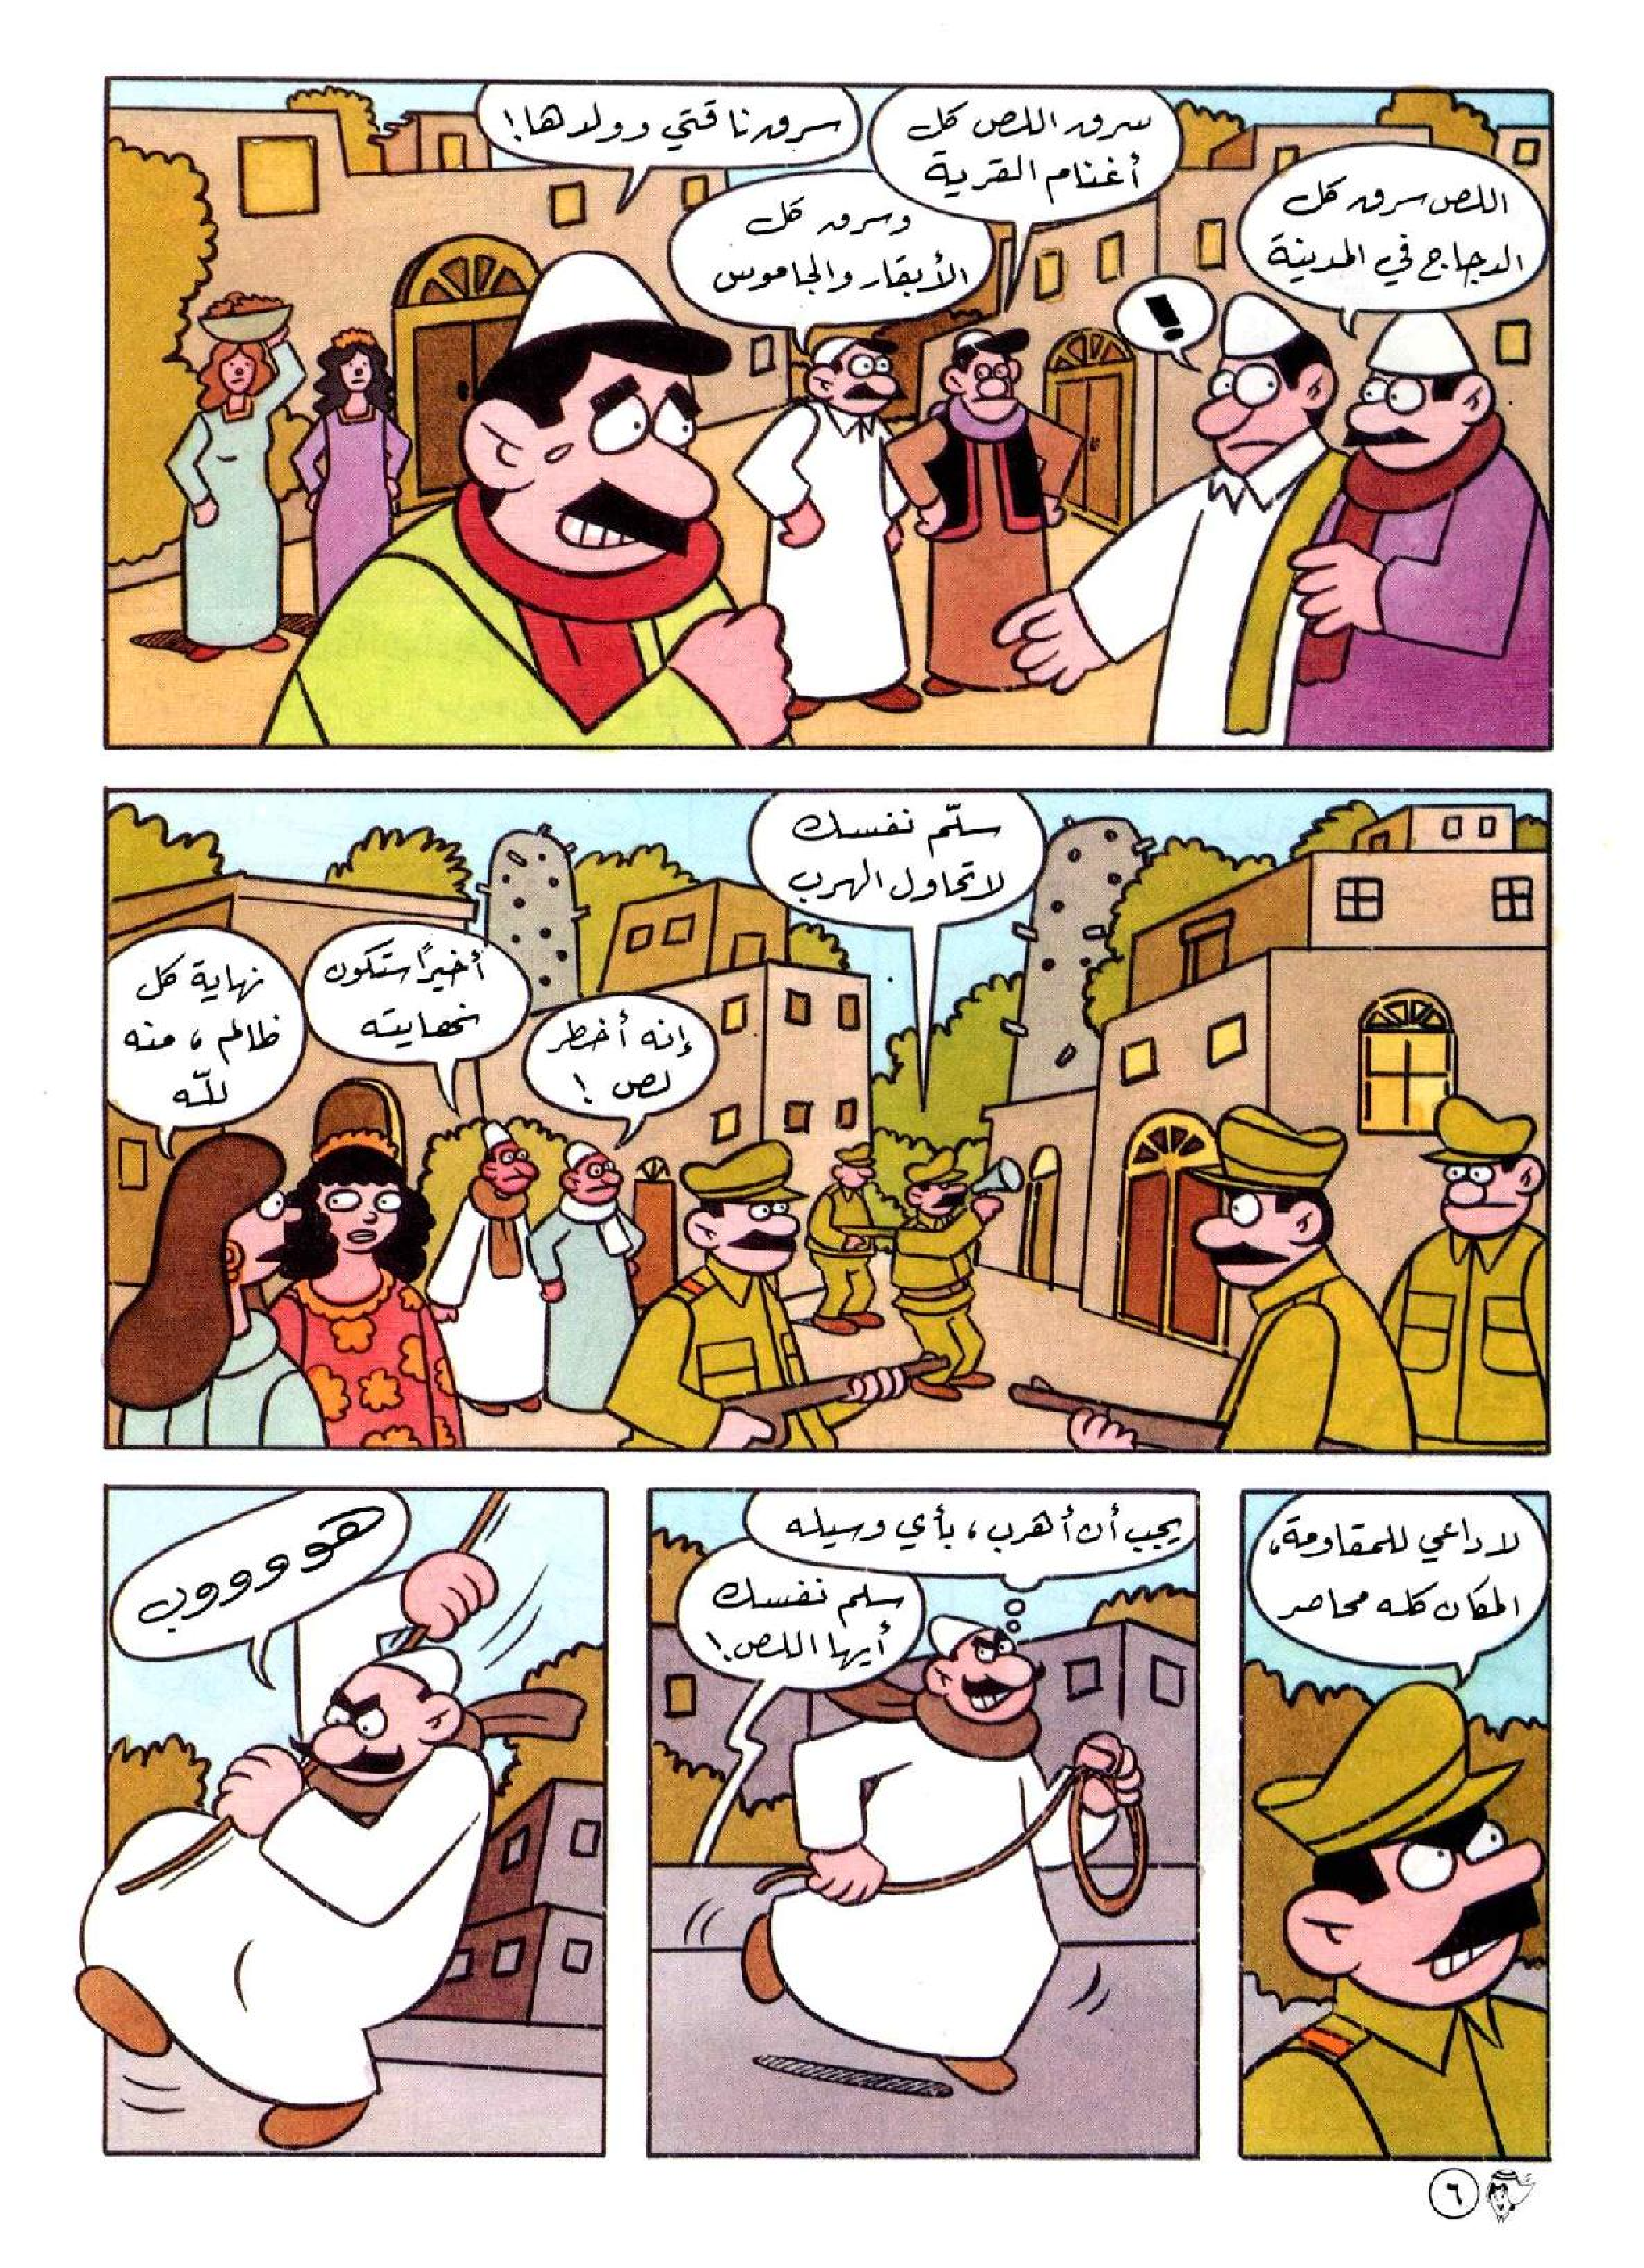 اللص سرق كل
الدجاج في المدينة
!
سرق اللص كل
أغنام القرية
وسرق كل
الأبقار والجاموس
سرق ناقتي وولدها!
سلّم نفسك
لا تحاول الهرب
إنه أخطر
لص !
أخيراً ستكون
نهايته
نهاية كل
ظالم، منه
للّه
لا داعي للمقاومة،
المكان كله محاصر
يجب أن أهرب، بأي وسيله
سلم نفسك
أيها اللص!
هوووووب
٦